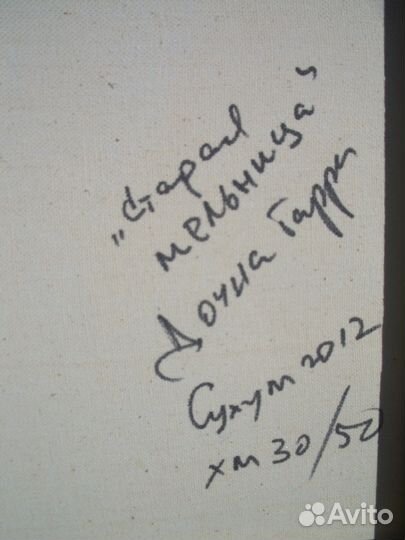 „Старая
мельница"
Дочиа Гарри
Сухум 2012
хм 30/50
Avito